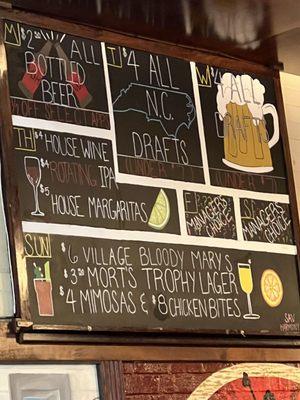 M $2.50 ALL
BOTTLED
BEER
½ OFF SELECT APPS
T $4 ALL
N.C.
DRAFTS
(UNDER
W $4
ALL
DRAFTS
(UNDER
TH $4 HOUSE WINE
$4 ROTATING IPA
$5 HOUSE MARGARITAS
F
MANAGERS
CHOICE
S
MANAGERS
CHOICE
SUN $6 VILLAGE BLOODY MARYS
MORT'S TROPHY LAGER
$4 MIMOSAS & $8 CHICKEN BITES
SAV
HARMONEY